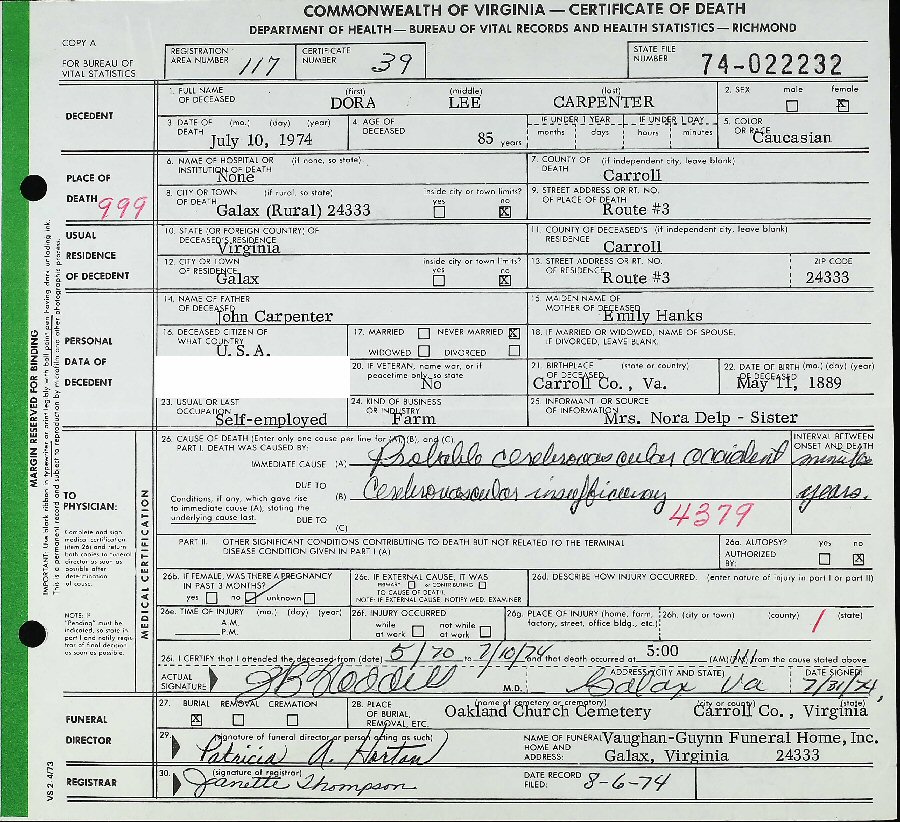 COMMONWEALTH OF VIRGINIA — CERTIFICATE OF DEATH
DEPARTMENT OF HEALTH — BUREAU OF VITAL RECORDS AND HEALTH STATISTICS — RICHMOND
COPY A
FOR BUREAU OF VITAL STATISTICS
REGISTRATION AREA NUMBER 117
CERTIFICATE NUMBER 39
STATE FILE NUMBER 74-022232
DECEDENT
1. FULL NAME OF DECEASED (first) (middle) (last)
DORA LEE CARPENTER
2. SEX male female ☒
3. DATE OF DEATH (mo.) (day) (year)
July 10, 1974
4. AGE OF DECEASED
85 years
IF UNDER 1 YEAR IF UNDER 1 DAY
months days hours minutes
5. COLOR OR RACE
Caucasian
PLACE OF DEATH 999
6. NAME OF HOSPITAL OR INSTITUTION OF DEATH (if none, so state)
None
7. COUNTY OF DEATH (if independent city, leave blank)
Carroll
8. CITY OR TOWN OF DEATH (if rural, so state)
Galax (Rural) 24333
inside city or town limits? yes no ☒
9. STREET ADDRESS OR RT. NO. OF PLACE OF DEATH
Route #3
USUAL RESIDENCE OF DECEDENT
10. STATE (OR FOREIGN COUNTRY) OF DECEASED'S RESIDENCE
Virginia
11. COUNTY OF DECEASED'S RESIDENCE (if independent city, leave blank)
Carroll
12. CITY OR TOWN OF RESIDENCE
Galax
inside city or town limits? yes no ☒
13. STREET ADDRESS OR RT. NO. OF RESIDENCE
Route #3
ZIP CODE
24333
PERSONAL DATA OF DECEDENT
14. NAME OF FATHER OF DECEASED
John Carpenter
15. MAIDEN NAME OF MOTHER OF DECEASED
Emily Hanks
16. DECEASED CITIZEN OF WHAT COUNTRY
U.S.A.
17. MARRIED NEVER MARRIED ☒
WIDOWED DIVORCED
18. IF MARRIED OR WIDOWED, NAME OF SPOUSE. IF DIVORCED, LEAVE BLANK.
20. IF VETERAN, name war, or if peacetime only, so state
No
21. BIRTHPLACE OF DECEASED (state or country)
Carroll Co., Va.
22. DATE OF BIRTH OF DECEASED (mo.) (day) (year)
May 11, 1889
23. USUAL OR LAST OCCUPATION
Self-employed
24. KIND OF BUSINESS OR INDUSTRY
Farm
25. INFORMANT OR SOURCE OF INFORMATION
Mrs. Nora Delp - Sister
MARGIN RESERVED FOR BINDING
MEDICAL CERTIFICATION
TO PHYSICIAN:
Complete and sign medical certification (item 26) and return both copies to funeral director as soon as possible after determination of cause.
NOTE: If "Pending" must be indicated, so state in part I and notify registrar of final decision as soon as possible.
26. CAUSE OF DEATH (Enter only one cause per line for (A), (B), and (C).
PART I. DEATH WAS CAUSED BY:
INTERVAL BETWEEN ONSET AND DEATH
IMMEDIATE CAUSE (A) Probable cerebrovascular accident minutes
DUE TO
(B) Cerebrovascular insufficiency years.
Conditions, if any, which gave rise to immediate cause (A), stating the underlying cause last.
DUE TO
(C)
4379
PART II. OTHER SIGNIFICANT CONDITIONS CONTRIBUTING TO DEATH BUT NOT RELATED TO THE TERMINAL DISEASE CONDITION GIVEN IN PART I (A)
26a. AUTOPSY? AUTHORIZED BY: yes no ☒
26b. IF FEMALE, WAS THERE A PREGNANCY IN PAST 3 MONTHS?
yes no unknown
26c. IF EXTERNAL CAUSE, IT WAS
PRIMARY or CONTRIBUTING
TO CAUSE OF DEATH.
NOTE: IF EXTERNAL CAUSE, NOTIFY MED. EXAMINER
26d. DESCRIBE HOW INJURY OCCURRED. (enter nature of injury in part I or part II)
26e. TIME OF INJURY (mo.) (day) (year)
A.M.
P.M.
26f. INJURY OCCURRED
while at work not while at work
26g. PLACE OF INJURY (home, farm, factory, street, office bldg., etc.)
26h. (city or town) (county) (state)
26i. I CERTIFY that I attended the deceased from (date) 5/70 to 7/10/74 and that death occurred at 5:00 (AM) from the cause stated above
ACTUAL SIGNATURE M.D.
ADDRESS (CITY AND STATE)
Galax Va
DATE SIGNED
7/31/74
FUNERAL DIRECTOR
27. BURIAL ☒ REMOVAL CREMATION
28. PLACE OF BURIAL, REMOVAL, ETC. (name of cemetery or crematory) (city or county) (state)
Oakland Church Cemetery Carroll Co., Virginia
29. (signature of funeral director or person acting as such)
Patricia A. Horton
NAME OF FUNERAL HOME AND ADDRESS:
Vaughan-Guynn Funeral Home, Inc.
Galax, Virginia 24333
REGISTRAR
30. (signature of registrar)
Janette Thompson
DATE RECORD FILED: 8-6-74
VS 2 4/73